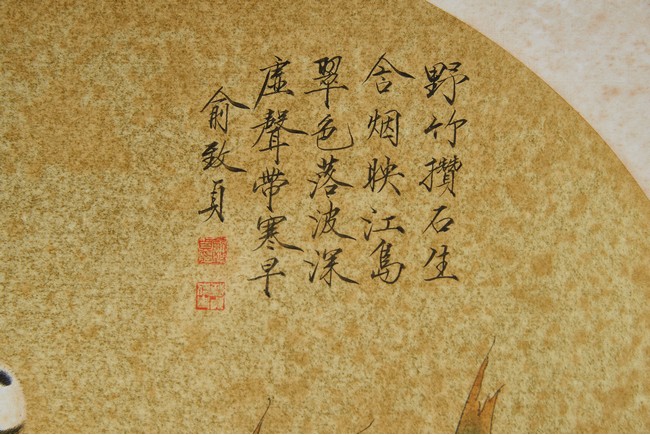 野竹攒石生
含烟映江島
翠色落波深
虛聲帶寒早
俞致貞